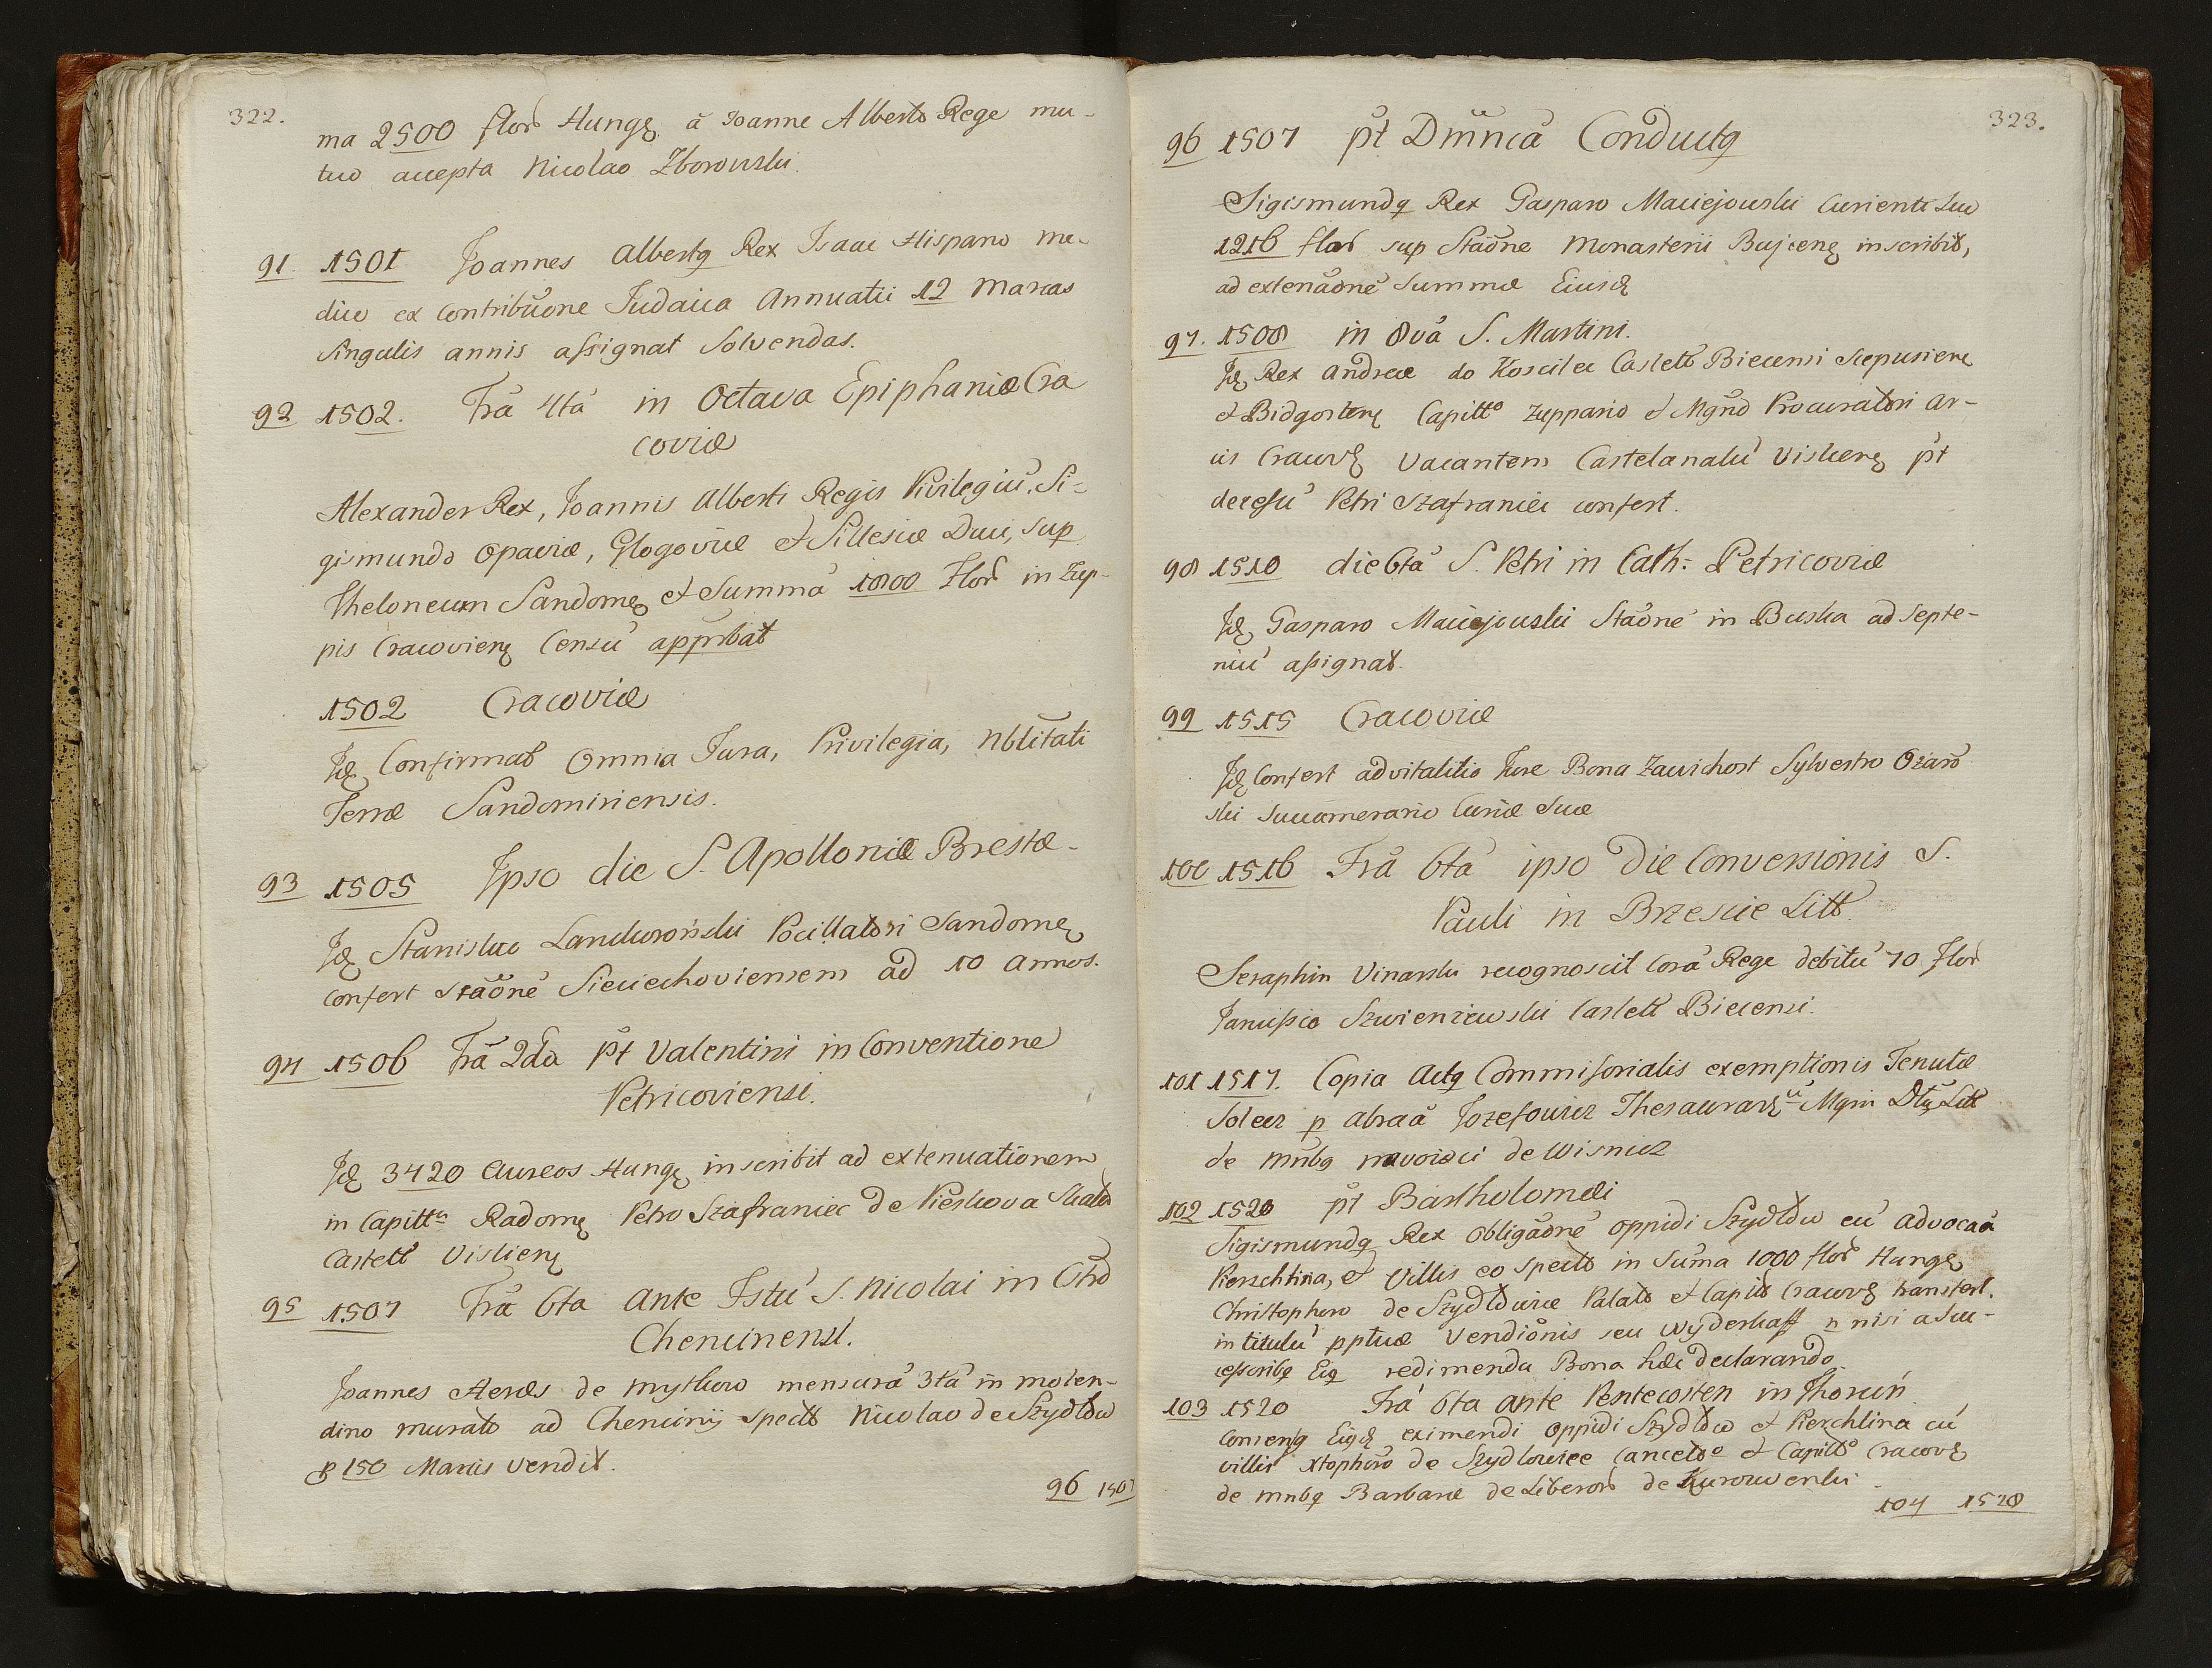 322.
ma 2500 flor Hung. á Joanne Alberto Rege mu-
tuo accepta Nicolao Zborowski.
91. 1501 Joannes Albertq Rex Isaac Hispano me-
dico ex Contribuõne Judaica Annuatii 12 Marcas
Singulis annis assignat Solvendas.
92 1502. Frã 4tá in Octava Epiphaniæ Cra
coviæ
Alexander Rex, Joannis Alberti Regis Privilegiu. Si-
gismundo Opaviæ, Glogoviæ et Sillesiæ Duci, sup
Theloneum Sandome et Summá 1800 Flor in Zup-
pis Cracovien Censu approbat
1502 Cracoviæ
Id Confirmat Omnia Jura, Privilegia, Nblitati
Terræ Sandomiriensis.
93 1505 Ipso die S. Apolloniæ Brestæ.
Id Stanislao Lanckoroński Pocillatori Sandome
confert Staõne Sieciechoviensem ad 10 annos.
94 1506 Frã 2da Pt Valentini in Conventione
Petricoviensi.
Id 3420 Aureos Hung inscribit ad extenuationem
in Capittu Radom Petro Szafraniec de Pieskova Skala
Castell Vislien
95 1507 Frã 6ta Ante Fstu S. Nicolai in
Chencinensi.
Joannes Heres de Mythcow mensurá 3tá in molen-
dino murato ad Chenciny spectt Nicolao de Szydłow
p 150 Marcis vendit.
96 1507
323.
96 1507 p̃t Dmncá Conductq
Sigismundq Rex Gasparo Maciejowski Curienti Suo
1216 flor sup Staõne Monasterii Bujcen inscribit,
ad extenãone Summæ Eiusd
97. 1508 in 8vá S. Martini.
Id Rex Andreæ do Koscilec Castell Biecensi Scepusien
et Bidgostien Capitto Zuppario et Mgno Procuratori ar-
cis Cracov Vacantem Castelanatu Vislien p̃t
decessu Petri Szafraniec confert.
98 1510 die 6tá S. Petri in Cath: Petricoviæ
Id Gasparo Maciejowski Staõne in Buska ad Septe-
niu assignat.
99 1515 Cracoviæ
Id Confert advitalitio Jure Bona Zawichost Sylvestro Ożaro
ski Succamerario Curiæ Suæ
100 1516 Frã 6tá ipso Die Conversionis S.
Pauli in Brzescie Litt.
Seraphin Vinarski recognoscit Corã Rege debitu 70 Flor
Janussio Szwienczewski Castell Biecensi.
101 1517. Copia Actq Commissorialis exemptionis Tenutæ
Solecz p Abraã Jozefowicz Mgni Litt
de mnbq de Wisnicz
102 1520 p̃t Bartholomæi
Sigismundq Rex Obligãone oppidi Szydłow cu advocaã
et Villis eo spectt in Suma 1000 flor Hung
Christophoro de Szydłowiec Palato et Capitt Cracov transfert.
in titulu pptuæ Vendiõnis seu Wyderkaff n nisi a Suc-
cessoribq Eiq redimenda Bona hæc declarando.
103 1520 Frã 6ta ante Pentecosten in Thoruń
Consensq Eiqd eximendi oppidi Szydłow et cu
villis Xtophoro de Szydlowiec Cancello et Capitto Cracov
de mnbq Barbaræ de Kurozwenki
104 1528